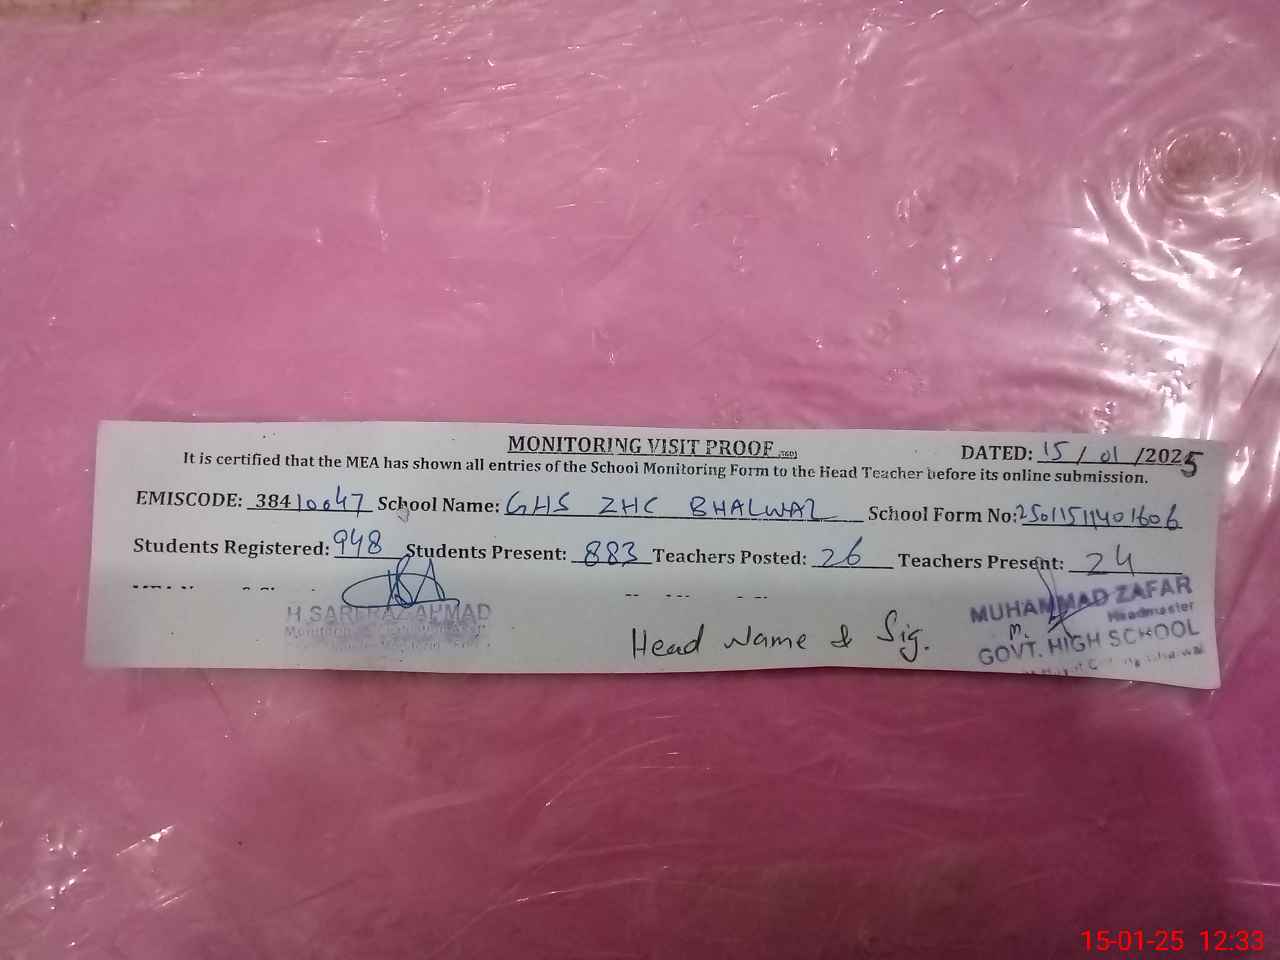 MONITORING VISIT PROOF
DATED: 15/01/2025
It is certified that the MEA has shown all entries of the School Monitoring Form to the Head Teacher before its online submission.
EMISCODE: 38410047 School Name: GHS ZHC BHALWAL School Form No: 2501151401606
Students Registered: 948 Students Present: 883 Teachers Posted: 26 Teachers Present: 24
H.SARFRAZ AHMAD
Head Name & Sig.
MUHAMMAD ZAFAR
Headmaster
GOVT. HIGH SCHOOL
15-01-25 12:33